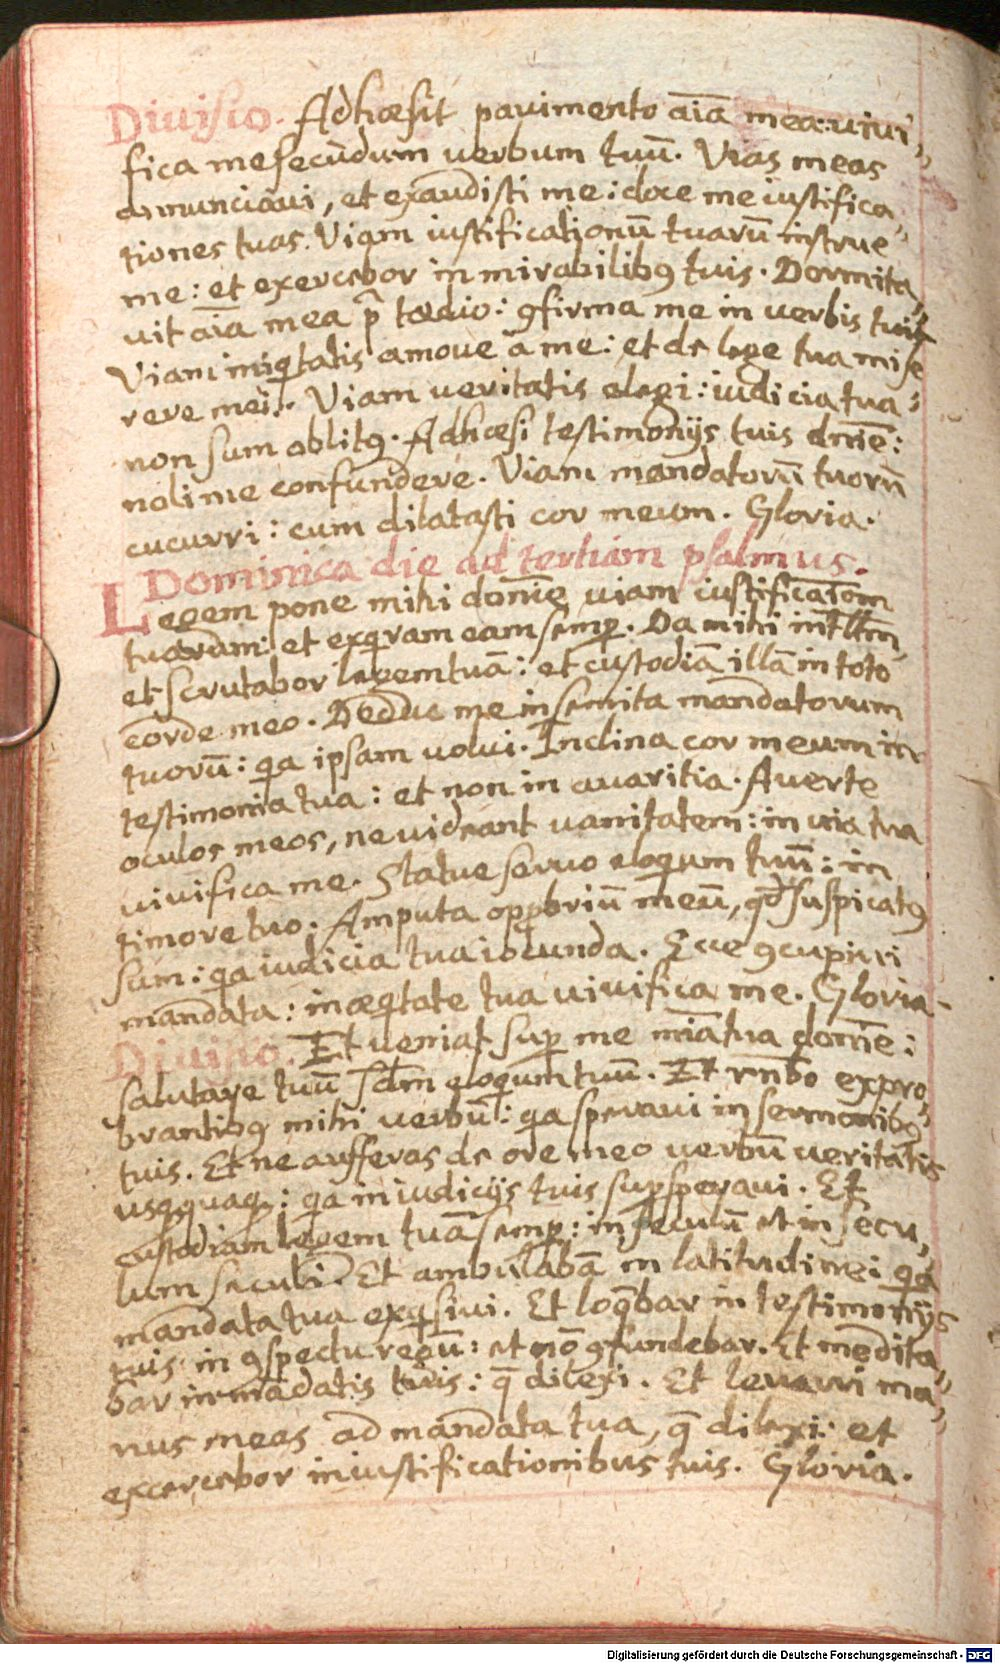 Diuisio. Adhæsit pavimento aīa mea: uiui„
fica me secūdum uerbum tuū. Vias meas
annunciaui, et exaudisti me: doce me iustifica„
tiones tuas. Viam iustificationū tuarū instrue
me: et exercebor in mirabilibꝯ tuis. Dormita„
uit aīa mea p̄ tædio: ꝯfirma me in uerbis tuis
Viam iniq̄tatis amoue ā me: et de lege tua mise
rere mei. Viam ueritatis elegi: iudicia tua
non sum oblitꝯ. Adhæsi testimonijs tuis dn̄e:
noli me confundere. Viam mandatorū tuorū
cucurri: cum dilatasti cor meum. Gloria.
Dominica die ad tertiam psalmus.
Legem pone mihi domīe uiam iustificatōm
tuarum: et exqram eam semp. Da mihi intllm,
et scrutabor legem tuā: et custodiā illā in toto
corde meo. Deduc me in semita mandatorum
tuorū: qa ipsam uolui. Inclina cor meum in
testimonia tua: et non in auaritia. Auerte
oculos meos, ne uideant uanitatem: in uia tua
uiuifica me. Statue seruo eloqum tuū: in
timore tuo. Amputa opprobriū meū, qd suspicatꝯ
sum: qa iudicia tua iocunda. Ecce ꝯcupiui
mandata: in æqtate tua uiuifica me. Gloria.
Diuisio. Et ueniat sup me mīa tua domīe:
salutare tuū sdm eloqum tuū. Et rn̄bo expro„
brantibꝯ mihi uerbū: qa speraui in sermonibꝯ
tuis. Et ne aufferas de ore meo uerbū ueritatis
usqquaq: qa in iudicijs tuis supsperaui. Et
custodiam legem tuā semp: in seculū et in secu„
lum seculi. Et ambulabā in latitudine: qa
mandata tua exqsiui. Et loq̄bar in testimonijs
tuis in ꝯspectu regū: et nō ꝯfundebar. Et medita„
bar in mādatis tuis: q̄ dilexi. Et leuaui ma„
nus meas ad mandata tua, q̄ dilexi: et
exercebor in iustificationibus tuis. Gloria.
Digitalisierung gefördert durch die Deutsche Forschungsgemeinschaft - DFG